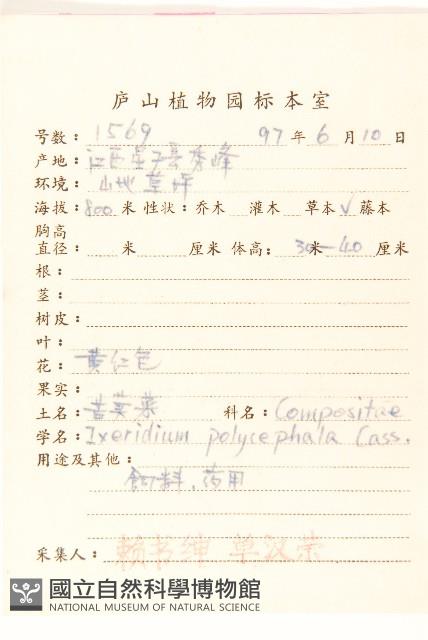 庐山植物园标本室
号数: 1569 97年6月10日
产地: 江西星子县秀峰
环境: 山地草坪
海拔: 800米 性状: 乔木 灌木 草本√ 藤本
胸高
直径: 米 厘米 体高: 30米—40厘米
根:
茎:
树皮:
叶:
花: 黄仁色
果实:
土名: 苦荬菜 科名: Compositae
学名: Ixeridium polycephala Cass.
用途及其他:
饲料.药用
采集人: 赖书绅 单汉荣
國立自然科學博物館
NATIONAL MUSEUM OF NATURAL SCIENCE